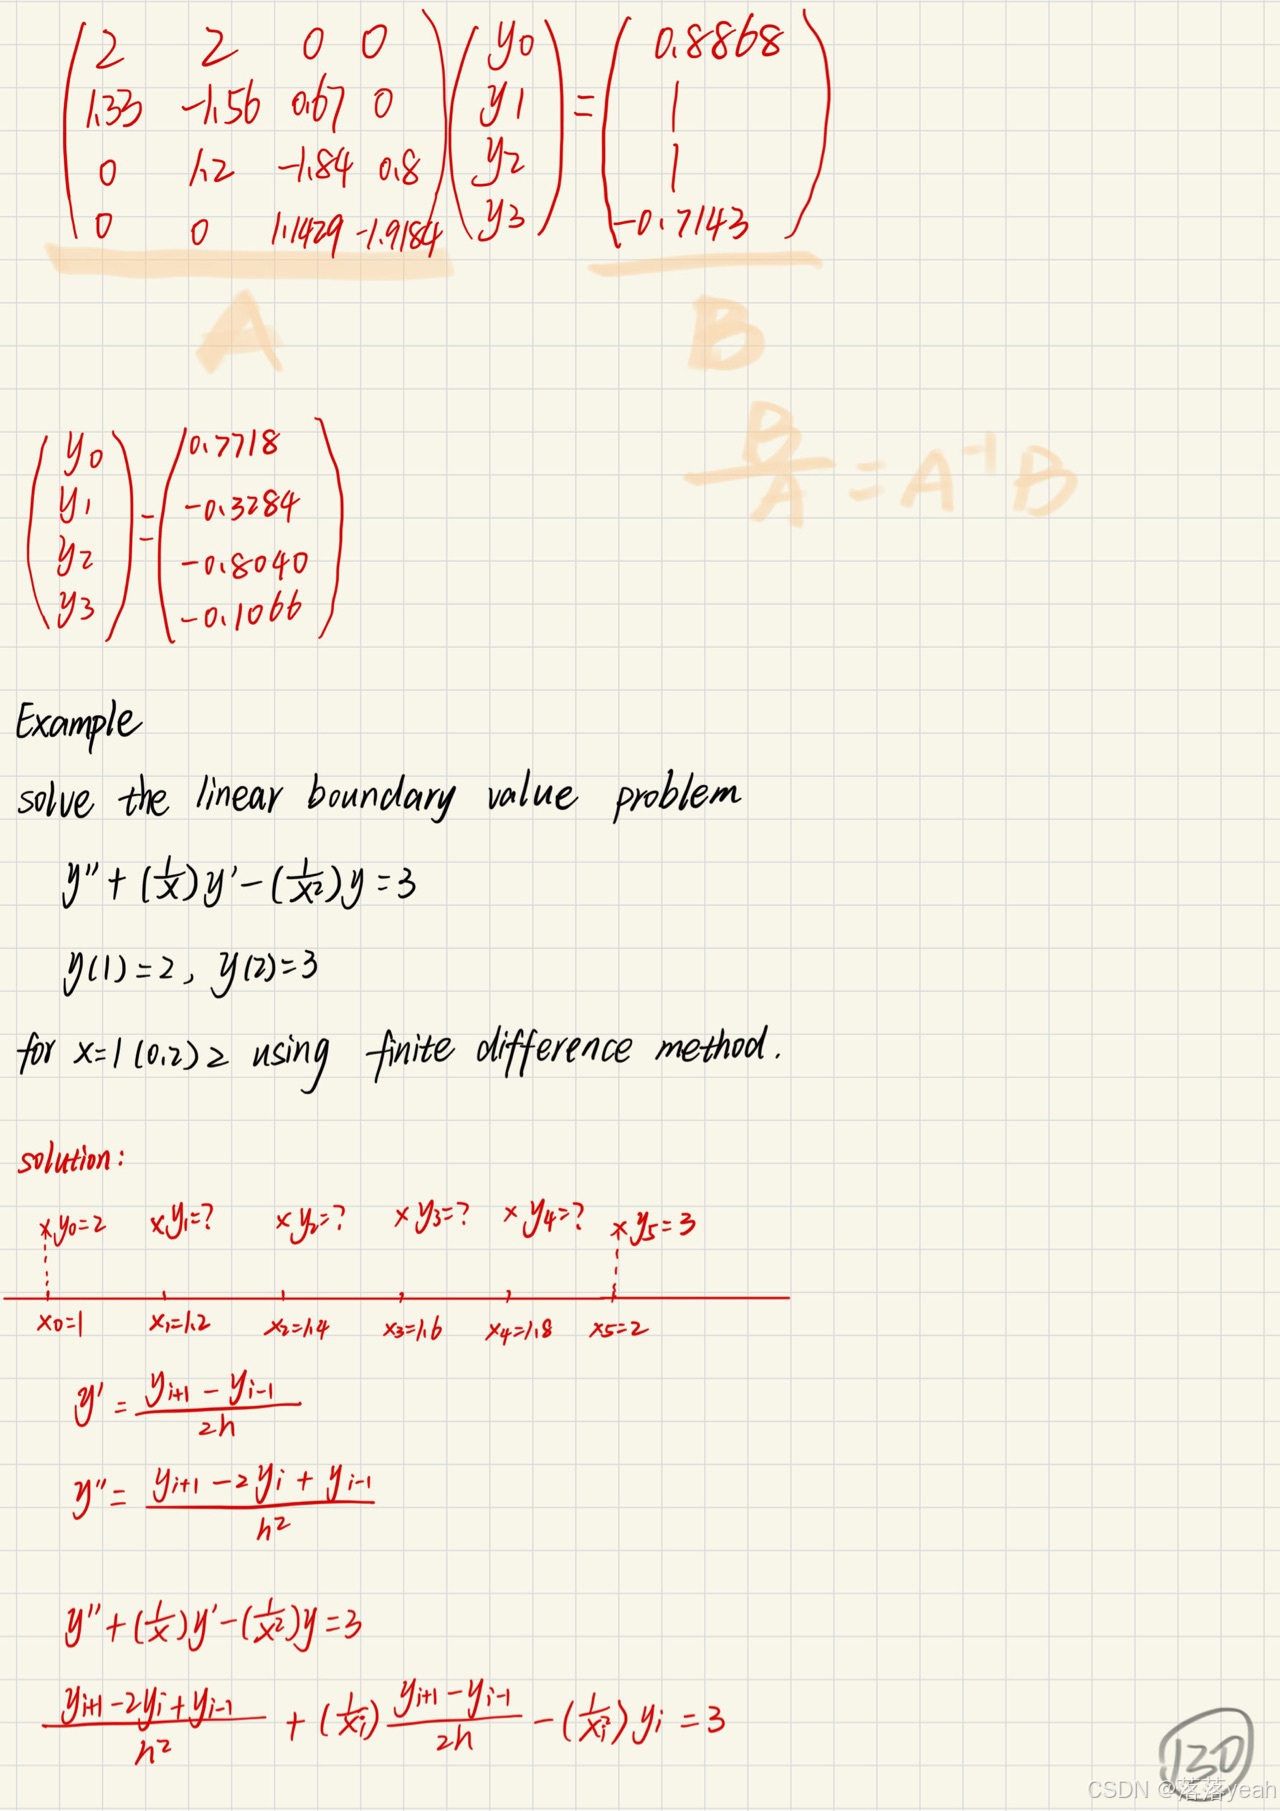 (2 2 0 0) (y0) = (0.8868)
(1.33 -1.56 0.67 0) (y1) (1)
(0 1.2 -1.84 0.8) (y2) (1)
(0 0 1.1429 -1.9184) (y3) (-0.7143)
A B
B/A = A⁻¹B
(y0) = (0.7718)
(y1) (-0.3284)
(y2) (-0.8040)
(y3) (-0.1066)
Example
solve the linear boundary value problem
y'' + (1/x)y' - (1/x²)y = 3
y(1) = 2, y(2) = 3
for x=1(0.2)2 using finite difference method.
solution:
x y0=2 x y1=? x y2=? x y3=? x y4=? x y5=3
x0=1 x1=1.2 x2=1.4 x3=1.6 x4=1.8 x5=2
y' = (yi+1 - yi-1)/2h
y'' = (yi+1 - 2yi + yi-1)/h²
y'' + (1/x)y' - (1/x²)y = 3
(yi+1 - 2yi + yi-1)/h² + (1/xi) (yi+1 - yi-1)/2h - (1/xi²)yi = 3
130
CSDN @落落yeah